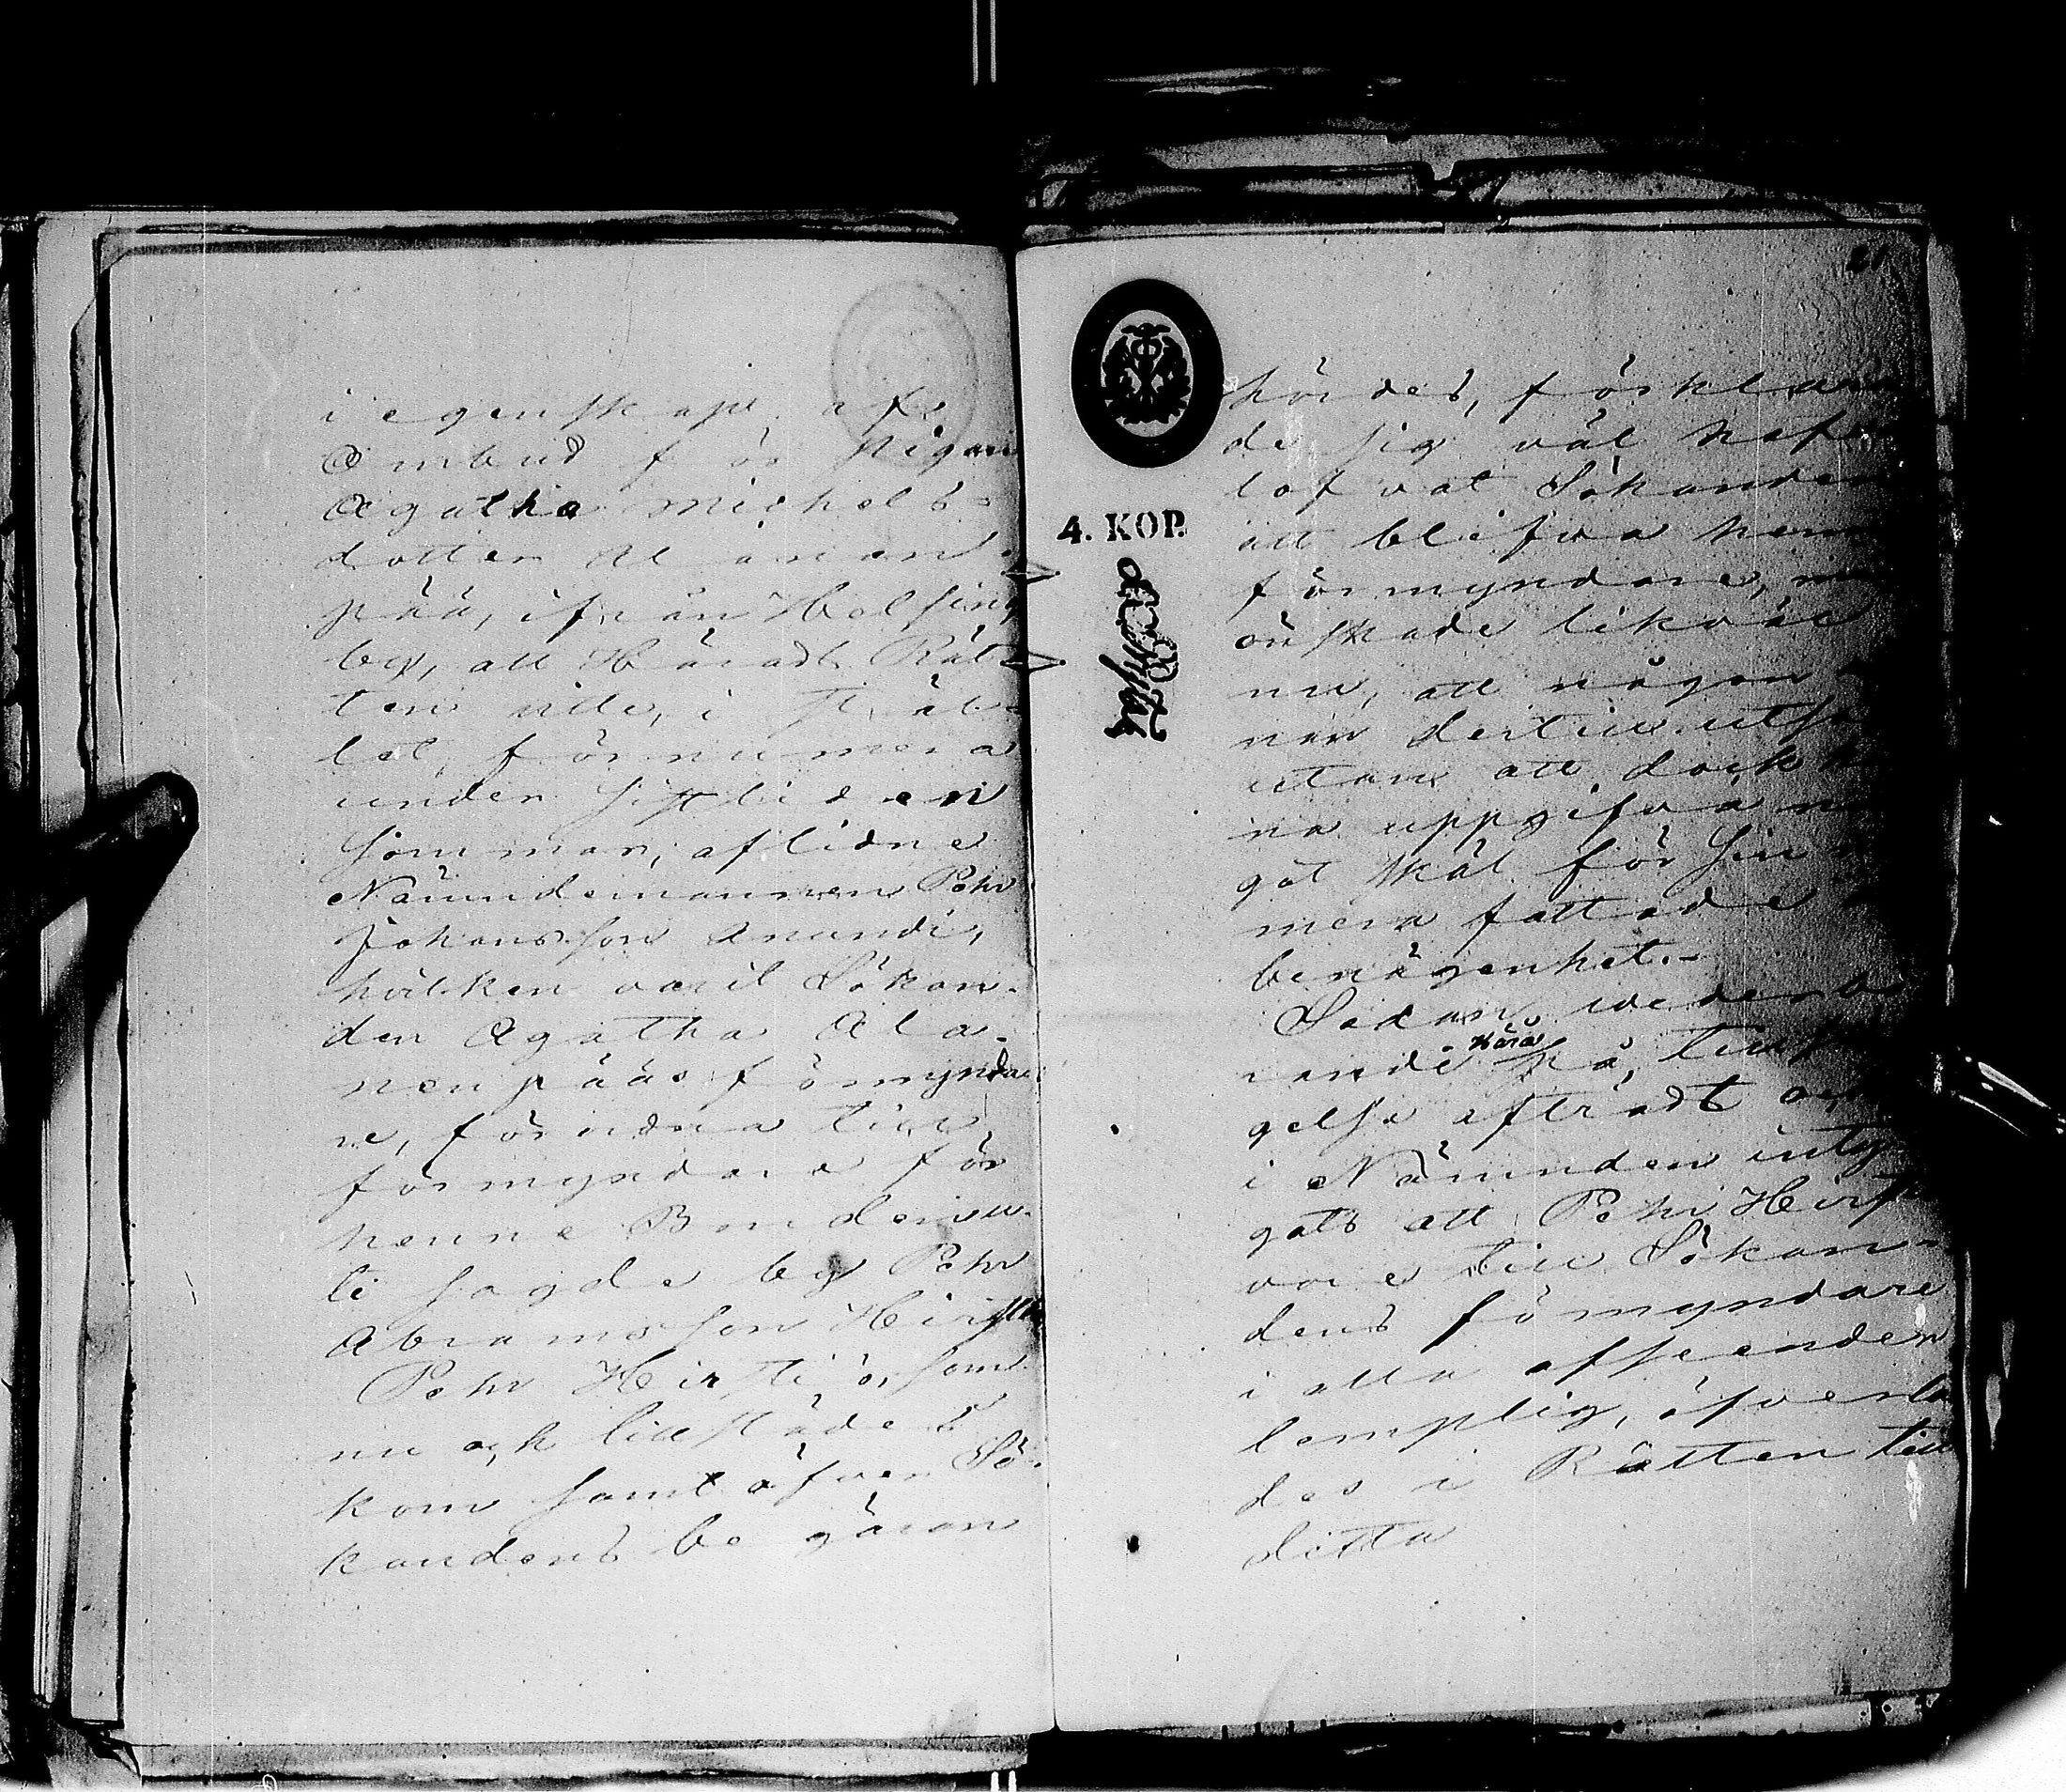 i egenskap af
Ombud för Pigan
Agatha Michels-
dotter Alanen-
pää, ifrån Helsing
by, att Härads Rät-
ten ville, i stäl-
let för numera
under sistliden
sommar, aflidne
Nämndemannen Pehr
Johansson Anundi,
hvilken varit Sökan-
den Agatha Ala-
nenpääs förmynda-
re, förordna till
förmyndare för
henne Bonden i
sagde by Pehr
Abramsson Heir
Pehr Heir som
nu ock tillstädes
kom samt öfver Sö-
kandens begäran
21
4. KOP.
hördes, förklara
de sig väl hafva
lofvat Sökanden
att blifva henn
förmyndare, m
önskade likväl
nu, att någon
nan dertill utse
utan att dock k
na uppgifva nå
got skäl för sin
mera fattade
benägenhet.-
Sedan wederbö
rande Kära på till
gelse afträdt och
i Nämnden inty
gats att Pehr Heir
vore till Sökan-
dens förmyndare
i alla afseenden
lemplig, öfverla
des i Rätten till
detta